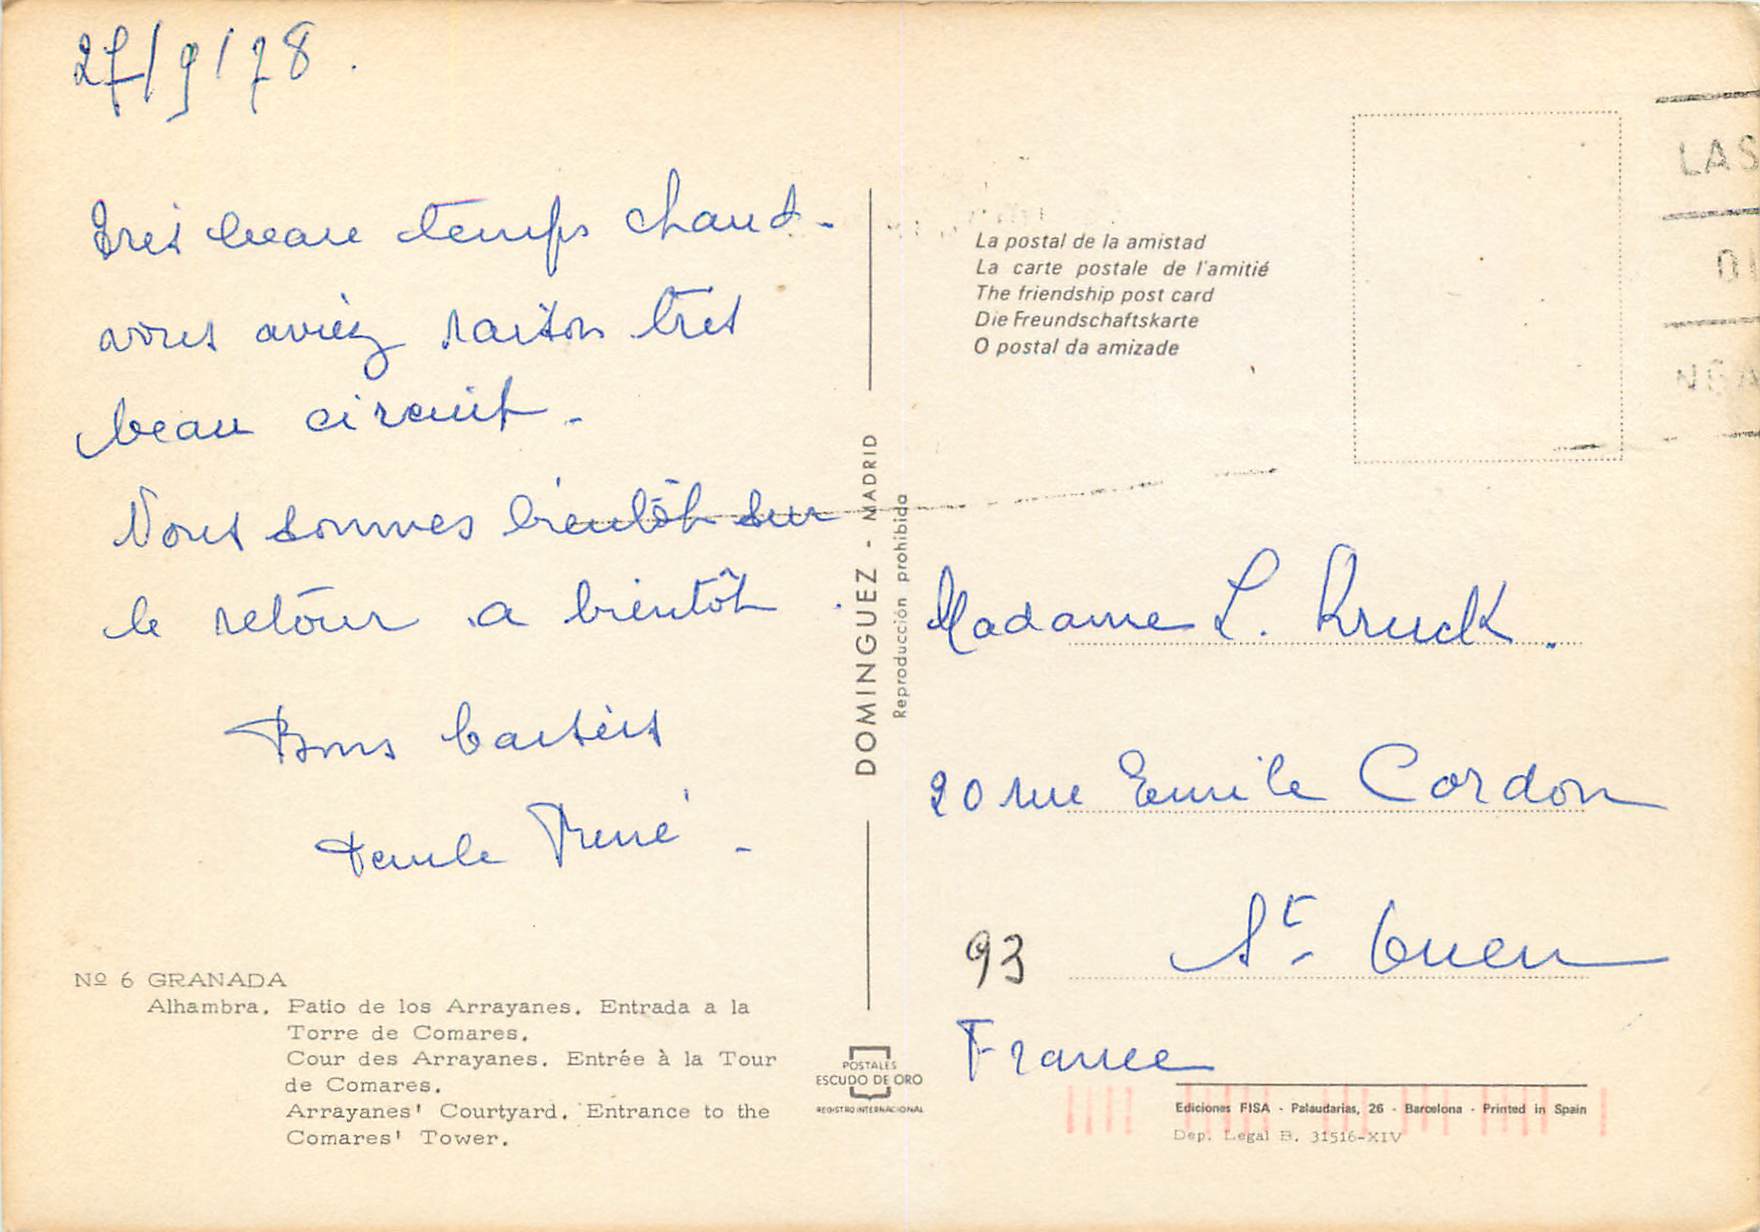 27/9/78.
Très beau temps chaud.
vous aviez raison très
beau circuit.
Nous sommes bientôt sur
le retour a bientôt
Bons baisers
Paule René
Nº 6 GRANADA
Alhambra. Patio de los Arrayanes. Entrada a la
Torre de Comares.
Cour des Arrayanes. Entrée à la Tour
de Comares.
Arrayanes' Courtyard. Entrance to the
Comares' Tower.
DOMINGUEZ - MADRID
Reproducción prohibida
POSTALES
ESCUDO DE ORO
REGISTRO INTERNACIONAL
LAS
La postal de la amistad
La carte postale de l'amitié
The friendship post card
Die Freundschaftskarte
O postal da amizade
Madame L. Kruck.
20 rue Emile Cordon
93 St- Ouen
France
Ediciones FISA - Palaudarias, 26 - Barcelona - Printed in Spain
Dep. Legal B. 31516-XIV